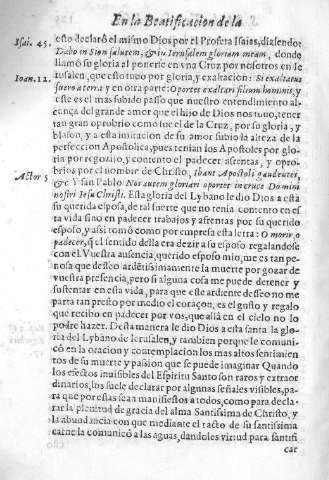 En la Beatificacion de la
Isai. 45. esto declarò el mismo Dios por el Profeta Isaias, diziendo:
Dabo in Sion salutem, & in Ierusalem gloriam meam, donde
llamò su gloria al ponerse en vna Cruz por nosotros en Ie
Ioan. 12. rusalen, que esto tudo por gloria, y exaltacion: Si exaltatus
fuero a terra y en otra parte: Oportet exaltari filium hominis, y
este es el mas subido passo que nuestro entendimiento al-
cança del grande amor que el hijo de Dios nos tuuo, tener
tan gran oprobrio como fue el de la Cruz, por su gloria, y
blason, y a esta imitacion de su amor subio la alteza de la
perfeccion Apostolica, pues tenian los Apostoles por glo-
ria por regozijo, y contento el padecer afrentas, y opro-
Actor 5 brios por el nombre de Christo, Ibant Apostoli gaudentes,
&c Y san Pablo Nos autem gloriari oportet in cruce Domini
nostri Iesu Christi. Esta gloria del Lybano le dio Dios a esta
su querida esposa, de tal suerte que no tenia contento en es
ta vida sino en padecer trabajos y afrentas por su querido
esposo, y assi tomò como por empresa esta letra: O morir, o
padecer, q̃ el sentido della era dezir a su esposo regalandose
con èl. Vuestra ausencia, querido esposo mio, me es tan pe-
nosa que desseo ardẽtissimamente la muerte por gozar de
vuestra presencia, pero si alguna cosa me puede detener y
sustentar en esta vida, para que este ardiente desseo no me
parta tan presto por medio el coraçon, es el gusto y regalo
que recibo en padecer por vos, que allà en el cielo no lo
podre hazer. Desta manera le dio Dios a esta santa la glo-
ria del Lybano de Ierusalen, y tambien porque le comuni-
cò en la oracion y contemplacion los mas altos sentimien
tos de su muerte y passion que se puede imaginar Quando
los efectos inuisibles del Espiritu Santo son raros y extraor
dinarios, los suele declarar por algunas señales visibles, pa-
ra que por estas sean manifiestos a todos, como para decla-
rar la plenitud de gracia del alma Santissima de Christo, y
la abundancia con que mediante el tacto de su santissima
carne la comunicò a las aguas, dandoles virtud para santifi
car